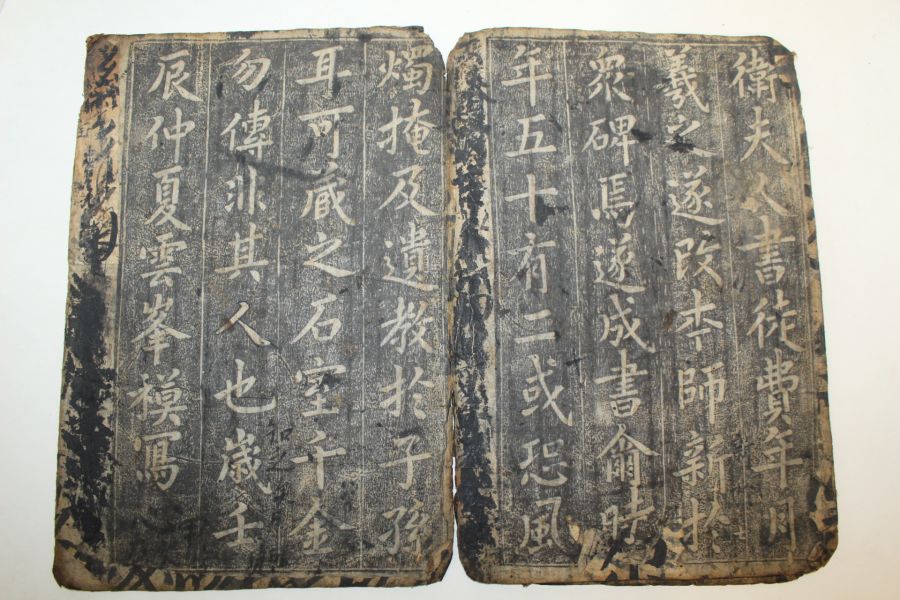 衛夫人書徒費年月
羲之遂改本師新於
衆碑焉遂成書時
年五十有二或恐風
燭掩及遺教於子孫
耳可藏之石室千金
勿傳非其人也歲壬
辰仲夏雲峯模寫